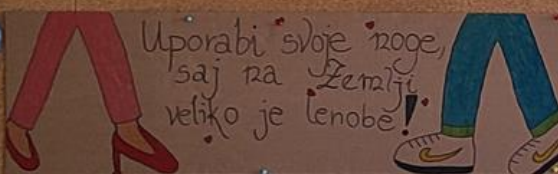 Uporabi svoje noge,
saj na Zemlji
veliko je lenobe!